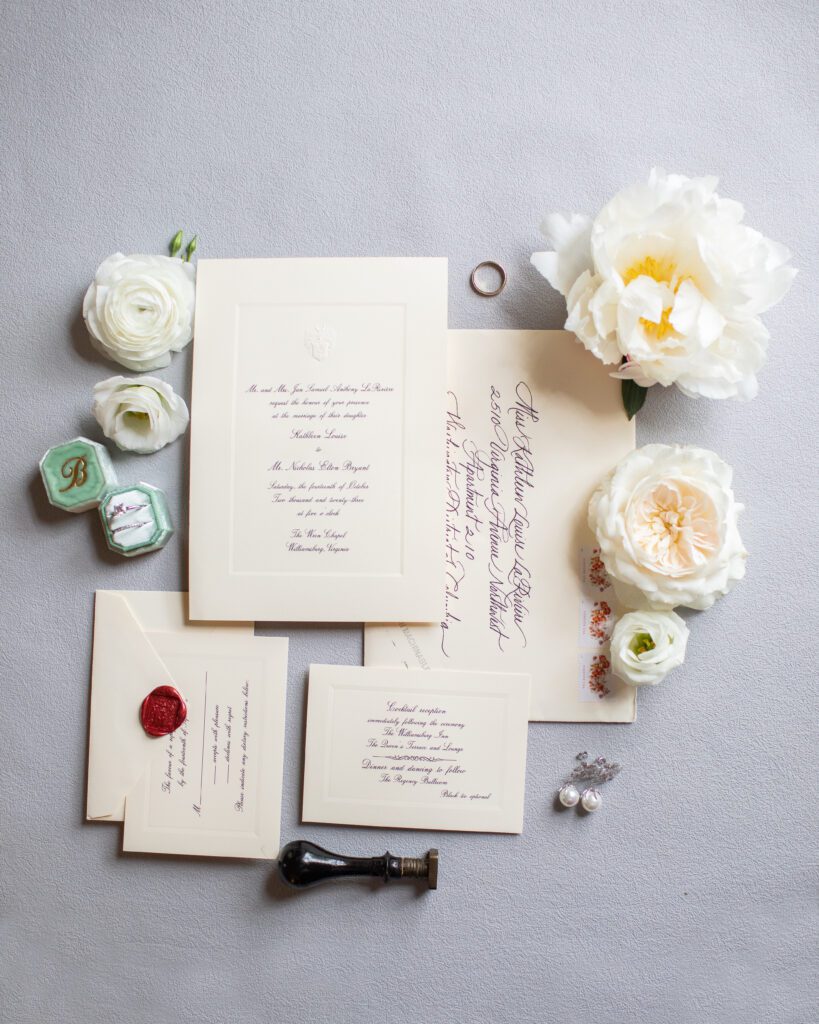 Mr. and Mrs. Jan Samuel Anthony LaRiviere
request the honour of your presence
at the marriage of their daughter
Kathleen Louise
to
Mr. Nicholas Elton Bryant
Saturday, the fourteenth of October
Two thousand and twenty-three
at five o'clock
The Wren Chapel
Williamsburg, Virginia
Miss Kathleen Louise LaRiviere
2510 Virginia Avenue Northwest
Apartment 210
Washington, District of Columbia
B
The favour of a
by the fourteenth of
M
accepts with pleasure
declines with regret
Please indicate any dietary restrictions below.
Cocktail reception
immediately following the ceremony
The Williamsburg Inn
The Queen's Terrace and Lounge
Dinner and dancing to follow
The Regency Ballroom
Black tie optional